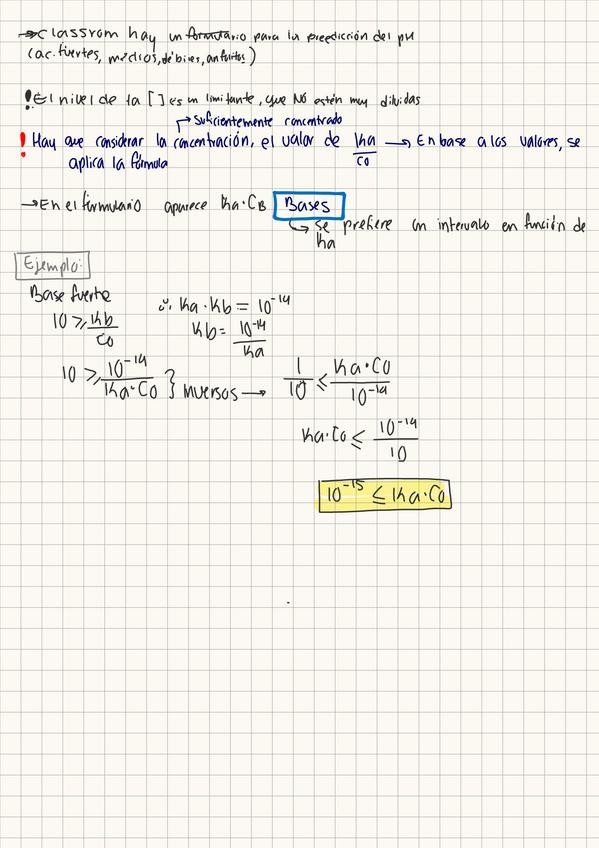 →Classrom hay un formutario para la preedicción del pH
(ac. fuertes, medios, débiles, anfolitos)
! El nivel de la [ ] es un limitante, que NO estén muy diluidas
→ Suficientemente concentrado
! Hay que considerar la concentración, el valor de Ka/Co → En base a los valores, se
aplica la fórmula
→ En el firmulario aparece Ka·CB Bases
↪ se prefiere un intervalo en función de
Ka
Ejemplo:
Base fuerte ∴ Ka·Kb = 10⁻¹⁴
10 ≥ Kb/Co Kb = 10⁻¹⁴/Ka
10 ≥ 10⁻¹⁴/Ka·Co } Inversos → 1/10 ≤ Ka·Co/10⁻¹⁴
Ka·Co ≤ 10⁻¹⁴/10
10⁻¹⁵ ≤ Ka·Co